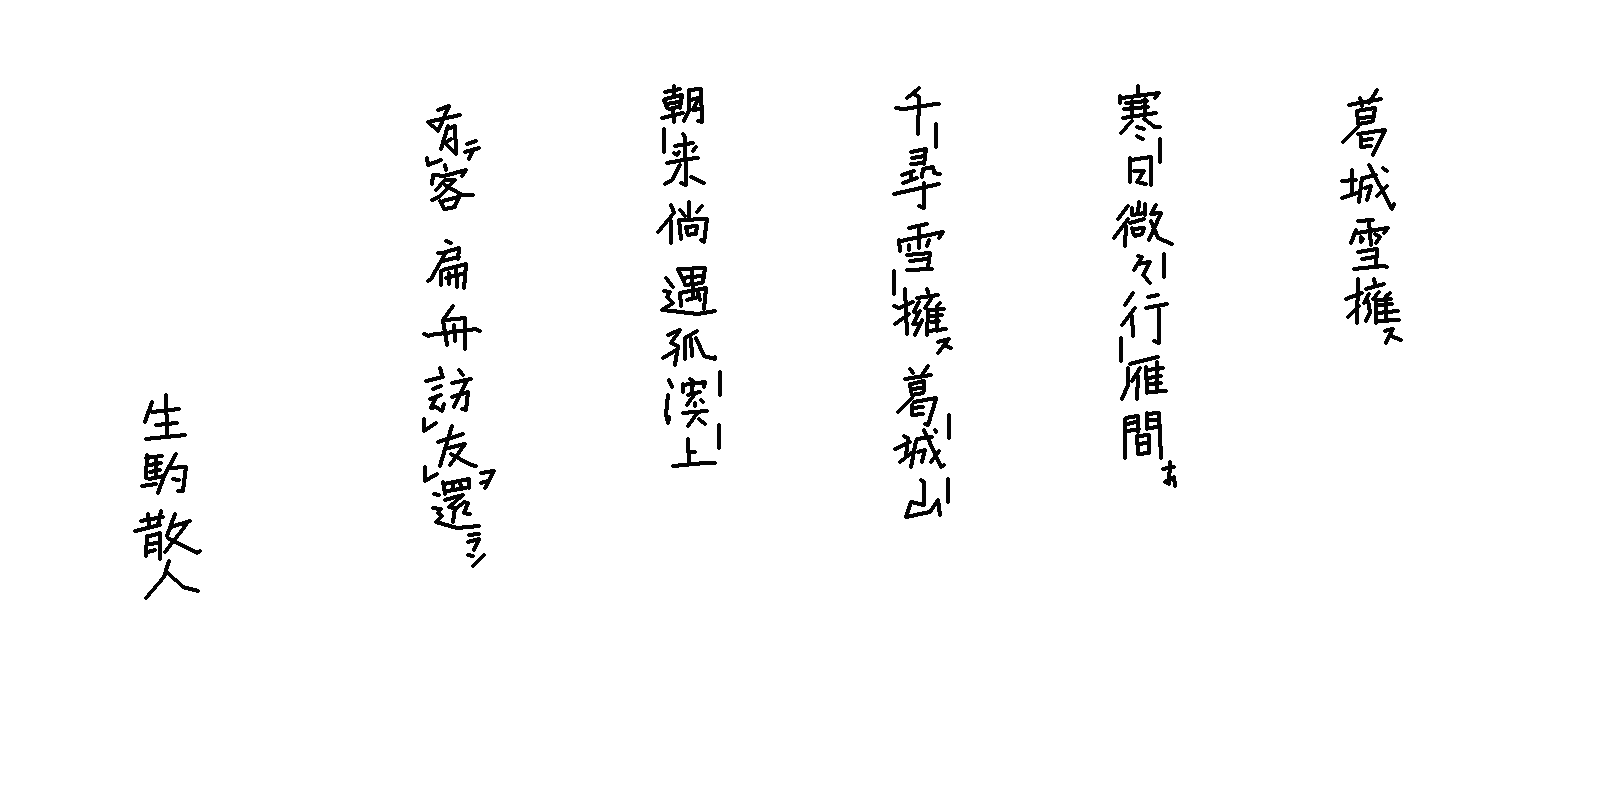 葛城雪擁ス
寒日微々行雁間
千尋雪擁ス葛城山
朝来倘遇孤渓上
有テ㆑客扁舟訪㆑友ヲ㆑還ラン
生駒散人